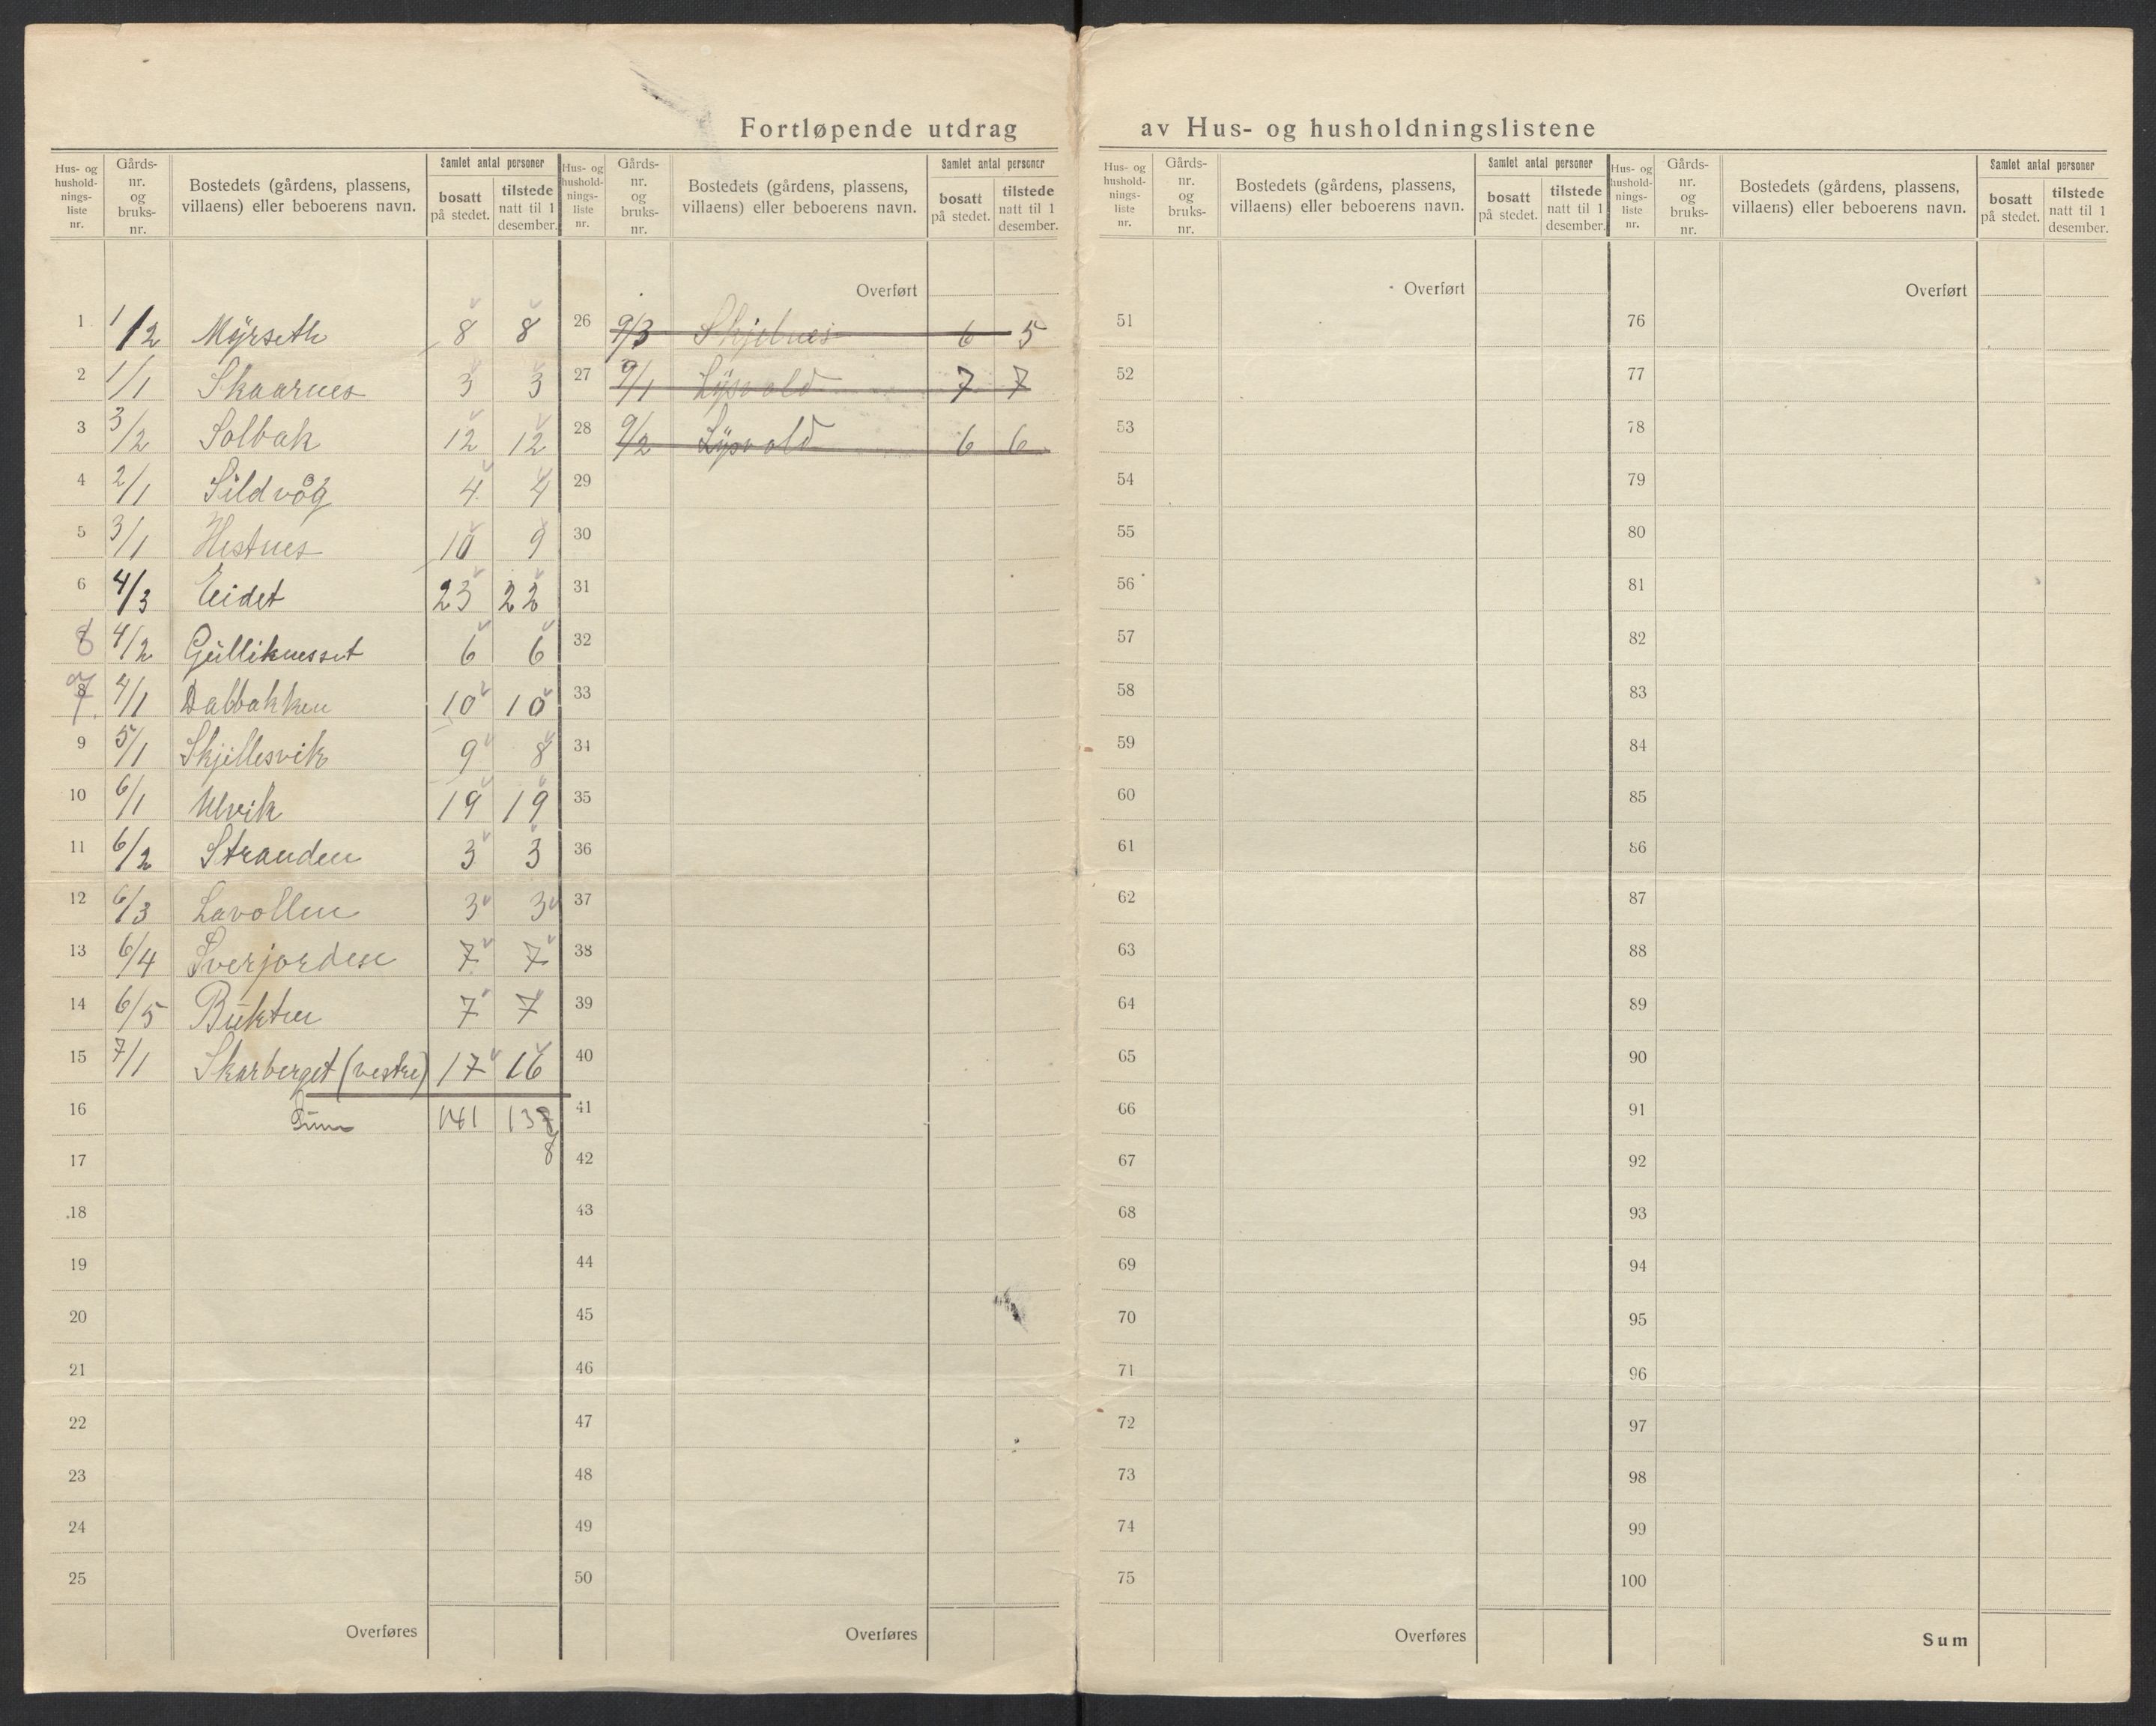 Fortløpende utdrag av Hus- og husholdningslistene
Hus- og husholdnings-liste nr. | Gårds-nr. og bruks-nr. | Bostedets (gårdens, plassens, villaens) eller beboerens navn. | Samlet antal personer | bosatt på stedet. | tilstede natt til 1 desember.
1 1/2 Myrseth 8 8
2 1/1 Skaarnes 3 3
3 3/2 Solbak 12 12
4 2/1 Sildvåg 4 4
5 3/1 Hestnes 10 9
6 4/3 Eidet 23 22
8 4/2 Gulliknesset 6 6
7 4/1 Dalbakken 10 10
9 5/1 Skjellesvik 9 8
10 6/1 Ulvik 19 19
11 6/2 Stranden 3 3
12 6/3 Lavollen 3 3
13 6/4 Sverjorden 7 7
14 6/5 Bukten 7 7
15 7/1 Skarberget (vestre) 17 16
16 Sum 141 137
17 8
18
19
20
21
22
23
24
25
Overføres
Hus- og husholdnings-liste nr. | Gårds-nr. og bruks-nr. | Bostedets (gårdens, plassens, villaens) eller beboerens navn. | Samlet antal personer | bosatt på stedet. | tilstede natt til 1 desember.
Overført
26 9/3 Skjelnes 6 5
27 9/1 Lysvold 7 7
28 9/2 Lysvold 6 6
29
30
31
32
33
34
35
36
37
38
39
40
41
42
43
44
45
46
47
48
49
50
Overføres
Hus- og husholdnings-liste nr. | Gårds-nr. og bruks-nr. | Bostedets (gårdens, plassens, villaens) eller beboerens navn. | Samlet antal personer | bosatt på stedet. | tilstede natt til 1 desember.
Overført
51
52
53
54
55
56
57
58
59
60
61
62
63
64
65
66
67
68
69
70
71
72
73
74
75
Overføres
Hus- og husholdnings-liste nr. | Gårds-nr. og bruks-nr. | Bostedets (gårdens, plassens, villaens) eller beboerens navn. | Samlet antal personer | bosatt på stedet. | tilstede natt til 1 desember.
Overført
76
77
78
79
80
81
82
83
84
85
86
87
88
89
90
91
92
93
94
95
96
97
98
99
100
Sum